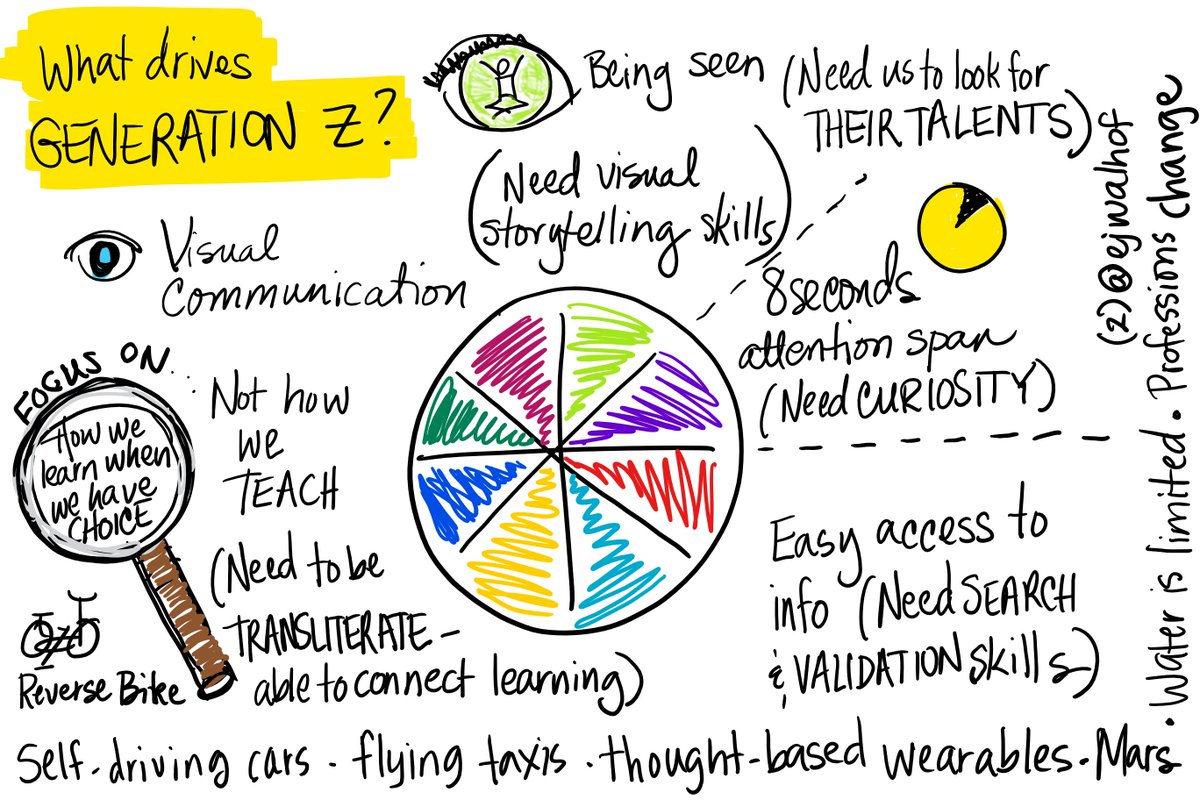 What drives
GENERATION Z?
Being seen
(Need us to look for
THEIR TALENTS)
(Need visual
storytelling skills)
Visual
Communication
8 seconds
attention span
(Need CURIOSITY)
FOCUS ON...
How we
learn when
we have
CHOICE
Not how
we
TEACH
(Need to be
TRANSLITERATE -
able to connect learning)
Reverse Bike
Easy access to
info (Need SEARCH
& VALIDATION skills)
Self-driving cars · flying taxis · thought-based wearables · Mars
· Water is limited · Professions change
(2) @ejwalhof